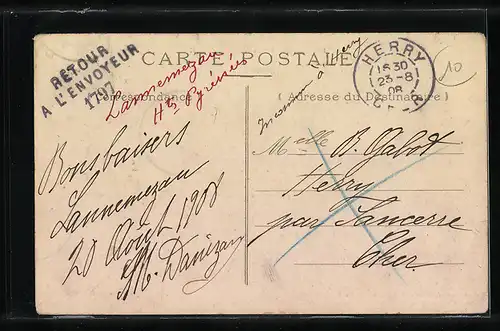 CARTE POSTALE
RETOUR
A L'ENVOYEUR
1797
Lannemezan
Htes Pyrénées
Correspondance
Inconnu à Herry
HERRY
1630
23-8
08
10
( Adresse du Destinataire )
Bons baisers
Lannemezan
20 Août 1908
M.
Melle B. Gabot
Herry
par Sancerre
Cher.